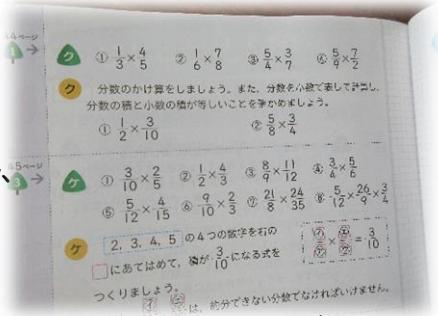 44ページ
1 →
ク ① 1/3×4/5 ② 1/6×7/8 ③ 5/4×3/7 ④ 5/9×7/2
ク 分数のかけ算をしましょう。また、分数を小数で表して計算し、
分数の積と小数の積が等しいことを確かめましょう。
① 1/2×3/10 ② 5/8×3/4
45ページ
3 →
ケ ① 3/10×2/5 ② 1/2×4/3 ③ 8/9×11/12 ④ 3/4×5/6
⑤ 5/12×4/15 ⑥ 9/10×2/3 ⑦ 21/8×24/35 ⑧ 5/12×26/9×3/4
ケ 2, 3, 4, 5 の4つの数字を右の
□にあてはめて、積が 3/10 になる式を
つくりましょう。
㋐/㋑×㋓/㋒=3/10
は、約分できない分数でなければいけません。